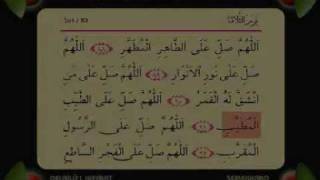 اَللّٰهُمَّ صَلِّ عَلَى الطَّاهِرِ الْمُطَهَّرِ اَللّٰهُمَّ
صَلِّ عَلَى نُوْرِ الْاَنْوَارِ اَللّٰهُمَّ صَلِّ عَلَى مَنِ
انْشَقَّ لَهُ الْقَمَرُ اَللّٰهُمَّ صَلِّ عَلَى الطَّيِّبِ
الْمُطَيَّبِ اَللّٰهُمَّ صَلِّ عَلَى الرَّسُوْلِ
الْمُقَرَّبِ اَللّٰهُمَّ صَلِّ عَلَى الْفَجْرِ السَّاطِعِ